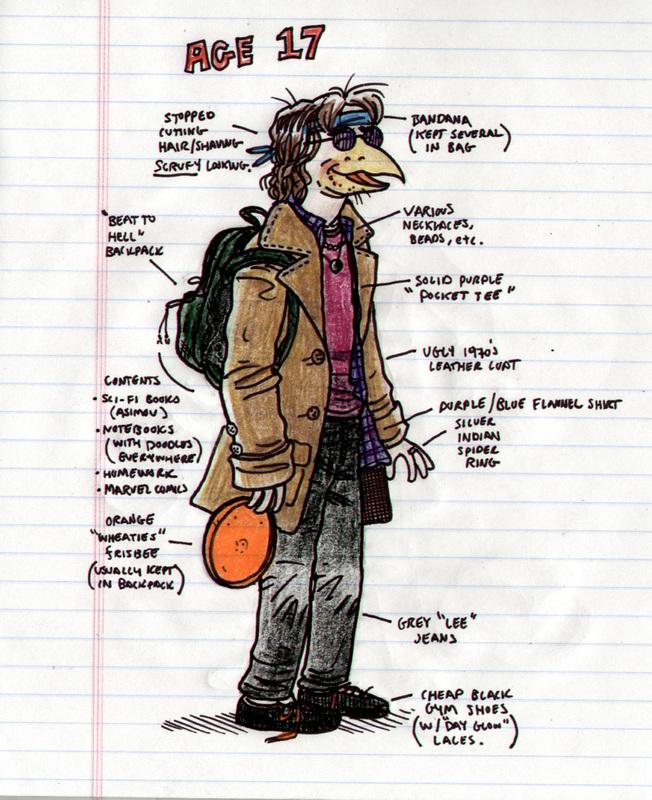 AGE 17
STOPPED
CUTTING
HAIR/SHAVING
SCRUFY LOOKING.
BANDANA
(KEPT SEVERAL
IN BAG)
"BEAT TO
HELL"
BACKPACK
VARIOUS
NECKLACES,
BEADS, etc.
SOLID PURPLE
"POCKET TEE"
UGLY 1970's
LEATHER COAT
CONTENTS
• SCI-FI BOOKS
(ASIMOV)
• NOTEBOOKS
(WITH DOODLES
EVERYWHERE)
• HOMEWORK
• MARVEL COMICS
PURPLE/BLUE FLANNEL SHIRT
SILVER
INDIAN
SPIDER
RING
ORANGE
"WHEATIES"
FRISBEE
(USUALLY KEPT
IN BACKPACK)
GREY "LEE"
JEANS
CHEAP BLACK
GYM SHOES
(W/"DAY GLOW"
LACES.)